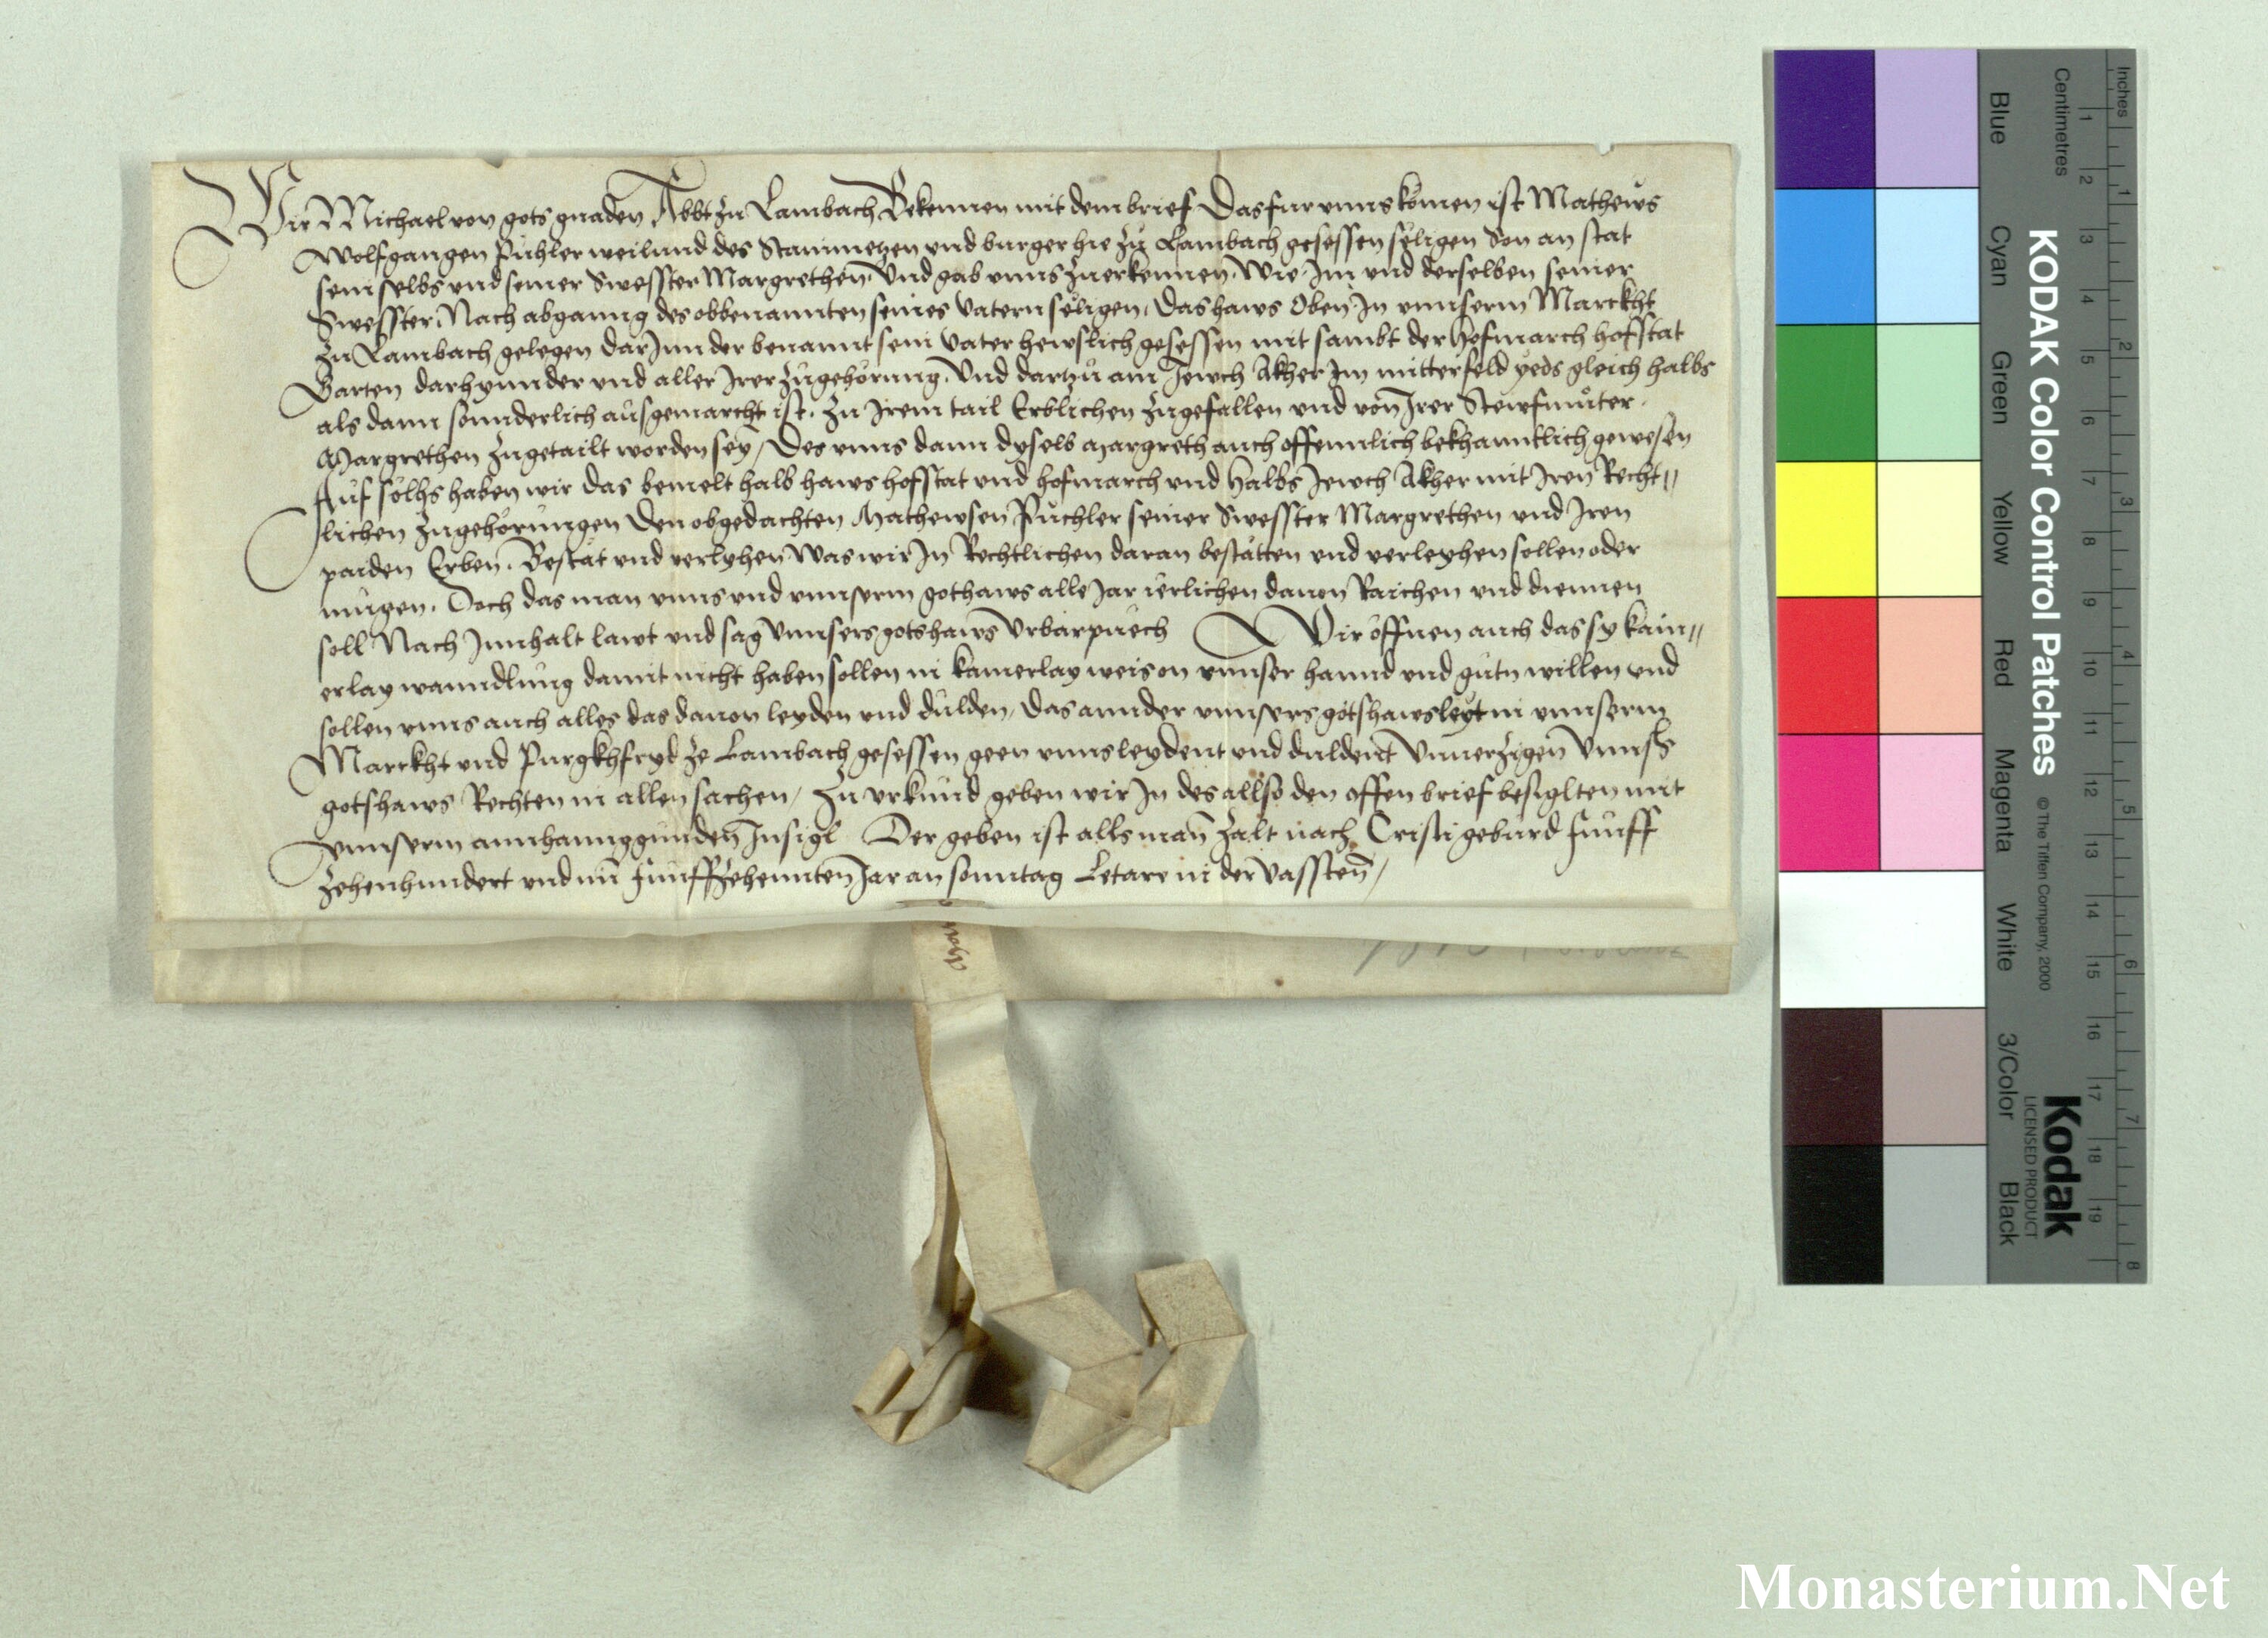 Wir Michael von gots gnaden Abbt zu Lambach Bekennen mit dem brief Das fur vnns komen ist Mathews
Wolfgangen Püchler weilund des Stainmetzen vnd burger hie zu Lambach gesessen seligen Son an stat
sein selbs vnd seiner Swesster Margrethen Vnd gab vnns zuerkennen Wie Im vnd derselben seiner
Swesster Nach abganng des obbenannten seines Vatern seligen Das haws Oben In vnnserm Marckht
zu Lambach gelegen darInn der benannt sein Vater hewslich gesessen mit sambt der Hofmarch hofstat
Garten darhynnder vnd aller Irer zugehörung Vnd dartzu ain Jewch Akher Im mitterfeld yeds gleich halbs
als dann sonnderlich ausgemarcht ist. zu Irem tail Erblichen zugefallen vnd von Irer Stewfmuter
Margrethen zugetailt worden sey / Des vnns dann dyselb Margreth auch offennlich bekhanntlich gewesen
Auf solhs haben wir das bemelt halb haws hofstat vnd hofmarch vnd Halbs Jewch Akher mit Iren Recht〃
lichen zugehörungen Den obgedachten Mathewsen Püchler seiner Swesster Margrethen vnd Iren
paiden Erben. Bestät vnd verlyhen Was wir In Rechtlichen daran bestätten vnd verleyhen sollen oder
mügen. Doch das man vnns vnd vnnserm gothaws alle Jar ierlichen dauon Raichen vnd diennen
soll Nach Innhalt lawt vnd sag Vnnsers gotshaws Vrbarpuech Wir öffnen auch das sy kain〃
erlay wanndlung damit nicht haben sollen in kainerlay weis on vnnser hannd vnd gutn willen vnd
sollen vnns auch alles das dauon leyden vnd dulden / Das annder vnnsers gotshawsleyt in vnnserm
Marckht vnd Purgkhfryd ze Lambach gesessen geen vnns leydent vnd duldent Vnuerzigen Vnnsers
gotshaws Rechten in allen sachen / Zu vrkund geben wir In des allso den offen brief besiglten mit
vnnserm annhanngunden Insigl Der geben ist alls man zalt nach Cristi geburd funff
zehenhundert vnd im funffzehennten Jar an sonntag Letare in der Vassten /
KODAK Color Control Patches © The Tiffen Company, 2000
Kodak
LICENSED PRODUCT
Inches
Centimetres
1 2 3 4 5 6 7 8 9 10 11 12 13 14 15 16 17 18 19
1 2 3 4 5 6 7 8
Blue Cyan Green Yellow Red Magenta White 3/Color Black
Monasterium.Net